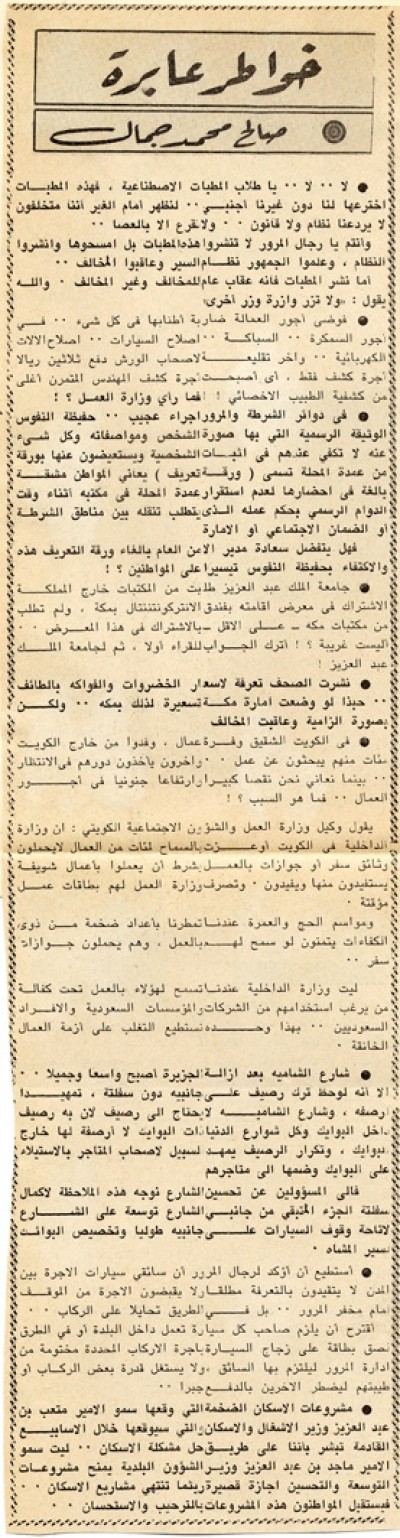 خواطر عابرة
صالح محمد جمال
● لا ·· لا ·· يا طلاب المطبات الاصطناعية ، فهذه المطبات
اخترعها لنا دون غيرنا أجنبي ·· لنظهر أمام الغير أننا متخلفون
لا يردعنا نظام ولا قانون ·· ولا نقرع الا بالعصا ··
وأنتم يا رجال المرور لا تنشروا هذه المطبات بل امسحوها وانشروا
النظام ، وعلموا الجمهور نظام السير وعاقبوا المخالف ··
أما نشر المطبات فانه عقاب عام للمخالف وغير المخالف · والله
يقول : «ولا تزر وازرة وزر أخرى»
● فوضى أجور العمالة ضاربة أطنابها فى كل شىء ·· فى
أجور السمكرة ·· السباكة ·· اصلاح السيارات ·· اصلاح الالات
الكهربائية ·· وآخر تقليعة لاصحاب الورش دفع ثلاثين ريالا
أجرة كشف فقط ، أى أصبحت أجرة كشف المهندس المتمرن أغلى
من كشفية الطبيب الاخصائي ! فما رأي وزارة العمل ؟ !
● فى دوائر الشرطة والمرور اجراء عجيب ·· حفيظة النفوس
الوثيقة الرسمية التي بها صورة الشخص ومواصفاته وكل شىء
عنه لا تكفي عندهم فى اثبات الشخصية ويستعيضون عنها بورقة
من عمدة المحلة تسمى ( ورقة تعريف ) يعاني المواطن مشقة
بالغة فى احضارها لعدم استقرار عمدة المحلة فى مكتبه أثناء وقت
الدوام الرسمي بحكم عمله الذى يتطلب تنقله بين مناطق الشرطة
أو الضمان الاجتماعي أو الامارة
فهل يتفضل سعادة مدير الامن العام بالغاء ورقة التعريف هذه
والاكتفاء بحفيظة النفوس تيسيرا على المواطنين ؟ !
● جامعة الملك عبد العزيز طلبت من المكتبات خارج المملكة
الاشتراك فى معرض أقامته بفندق الانتركونتننتال بمكة ، ولم تطلب
من مكتبات مكه ـ على الاقل ـ بالاشتراك فى هذا المعرض ··
أليست غريبة ؟ ! أترك الجواب للقراء أولا ، ثم لجامعة الملك
عبد العزيز !
● نشرت الصحف تعرفة لاسعار الخضروات والفواكه بالطائف
·· حبذا لو وضعت امارة مكة تسعيرة لذلك بمكه ·· ولكن
بصورة الزامية وعاقبت المخالف
● فى الكويت الشقيق وفرة عمال ، وفدوا من خارج الكويت
مئات منهم يبحثون عن عمل ·· وآخرون يأخذون دورهم فى الانتظار
·· بينما نعاني نحن نقصا كبيرا وارتفاعا جنونيا فى أجور
العمال ·· فما هو السبب ؟ !
يقول وكيل وزارة العمل والشؤون الاجتماعية الكويتي : ان وزارة
الداخلية فى الكويت أوعزت بالسماح لمئات من العمال لا يحملون
وثائق سفر أو جوازات بالعمل بشرط أن يعملوا بأعمال شريفة
يستفيدون منها ويفيدون · وتصرف وزارة العمل لهم بطاقات عمل
مؤقتة ·
ومواسم الحج والعمرة عندنا تمطرنا بأعداد ضخمة من ذوى
الكفاءات يتمنون لو سمح لهم بالعمل ، وهم يحملون جوازات
سفر ··
ليت وزارة الداخلية عندنا تسمح لهؤلاء بالعمل تحت كفالة
من يرغب استخدامهم من الشركات والمؤسسات السعودية والافراد
السعوديين ·· بهذا وحده نستطيع التغلب على أزمة العمال
الخانقة ·
● شارع الشاميه بعد ازالة الجزيرة أصبح واسعا وجميلا ··
الا أنه لوحظ ترك رصيف على جانبيه دون سفلتة ، تمهيدا
لرصفه ، وشارع الشاميه لا يحتاج الى رصيف لان به رصيف
داخل البوايك وكل شوارع الدنيا ذات البوايك لا أرصفة لها خارج
البوايك ، وتكرار الرصيف يمهد السبيل لاصحاب المتاجر بالاستيلاء
على البوايك وضمها الى متاجرهم
فالى المسؤولين عن تحسين الشارع نوجه هذه الملاحظة لاكمال
سفلتة الجزء المتبقي من جانبي الشارع توسعة على الشارع
لاتاحة وقوف السيارات على جانبيه طوليا وتخصيص البوائك
لسير المشاه ·
● أستطيع أن أؤكد لرجال المرور أن سائقي سيارات الاجرة بين
المدن لا يتقيدون بالتعرفة مطلقا ولا يقبضون الاجرة من الموقف
أمام مخفر المرور ·· بل فى الطريق تحايلا على الركاب ··
أقترح أن يلزم صاحب كل سيارة تعمل داخل البلدة أو فى الطرق
لصق بطاقة على زجاج السيارة بأجرة الاركاب المحددة مختومة من
ادارة المرور ليلتزم بها السائق ، ولا يستغل قدرة بعض الركاب أو
طيبتهم ليضطر الآخرين بالدفع جبرا ··
● مشروعات الاسكان الضخمة التي وقعها سمو الامير متعب بن
عبد العزيز وزير الاشغال والاسكان والتي سيوقعها خلال الاسابيع
القادمة تبشر بأننا على طريق حل مشكلة الاسكان ·· ليت سمو
الامير ماجد بن عبد العزيز وزير الشؤون البلدية يمنح مشروعات
التوسعة والتحسين اجازة قصيرة ريثما تنتهي مشاريع الاسكان ··
فيستقبل المواطنون هذه المشروعات بالترحيب والاستحسان ··